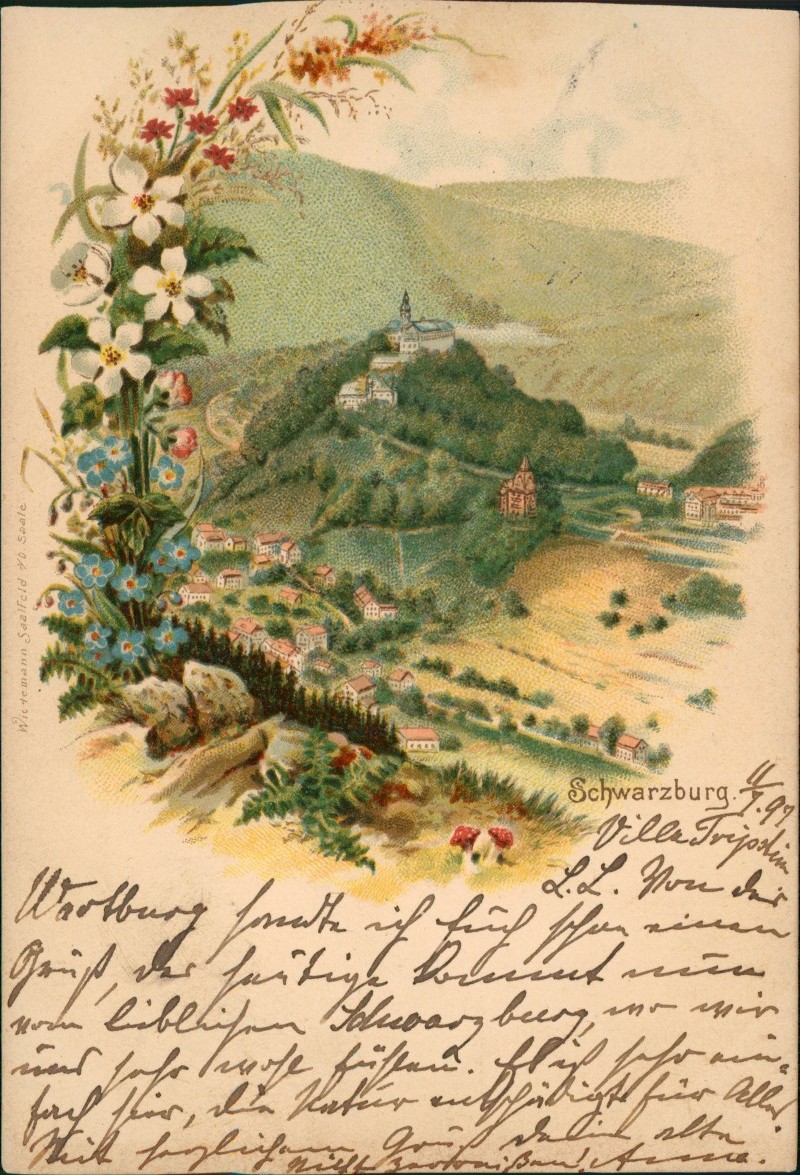 Schwarzburg.
11/7.97
Villa Tripstein
L.L. Von der
Wartburg sandte ich Euch schon einen
Gruß, der heutige kommt nun
vom lieblichen Schwarzburg, wo wir
uns sehr wohl fühlen. Es ist sehr ein-
fach hier, die Natur entschädigt für Alles.
Mit herzlichem Gruß Deine alte
Nicht zerreißen! Anna.
Wiedemann Saalfeld a/d Saale